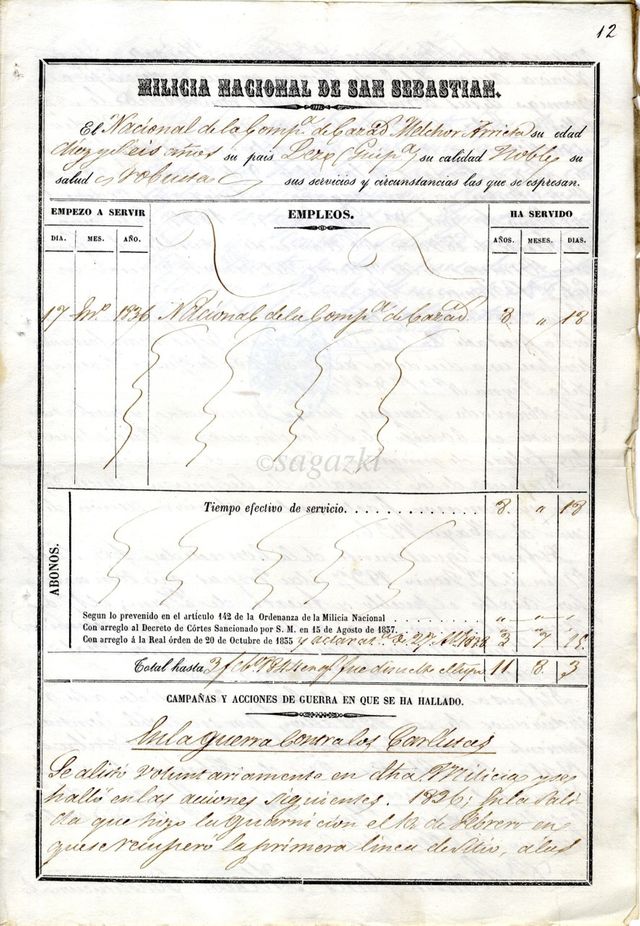 12
MILICIA NACIONAL DE SAN SEBASTIAN.
El Nacional de la Comp.ª de Cazad. Melchor Arrieta su edad
diez y seis años su pais Lezo (Guip.ª) su calidad Noble su
salud robusta sus servicios y circunstancias las que se espresan.
EMPEZO A SERVIR EMPLEOS. HA SERVIDO
DIA. MES. AÑO. AÑOS. MESES. DIAS.
17 1836 Nacional de la Comp.ª de Cazad. 8 " 18
©sagazki
ABONOS.
Tiempo efectivo de servicio. 8. " 18
Segun lo prevenido en el artículo 142 de la Ordenanza de la Milicia Nacional " " "
Con arreglo al Decreto de Córtes Sancionado por S. M. en 15 de Agosto de 1837.
Con arreglo á la Real órden de 20 de Octubre de 1835 y aclarat. de 27 1838 3 7 15
Total hasta 3 feb.º 1844 en q.e fue disuelta 11 8 3
CAMPAÑAS Y ACCIONES DE GUERRA EN QUE SE HA HALLADO.
En la guerra contra los Carlistas
Se alistó voluntariamente en dha Milicia y se
halló en las acciones siguientes. 1836; En la Sali
da que hizo la guarnicion el de Febrero en
que se recuperó la primera linea de Sitio, a las